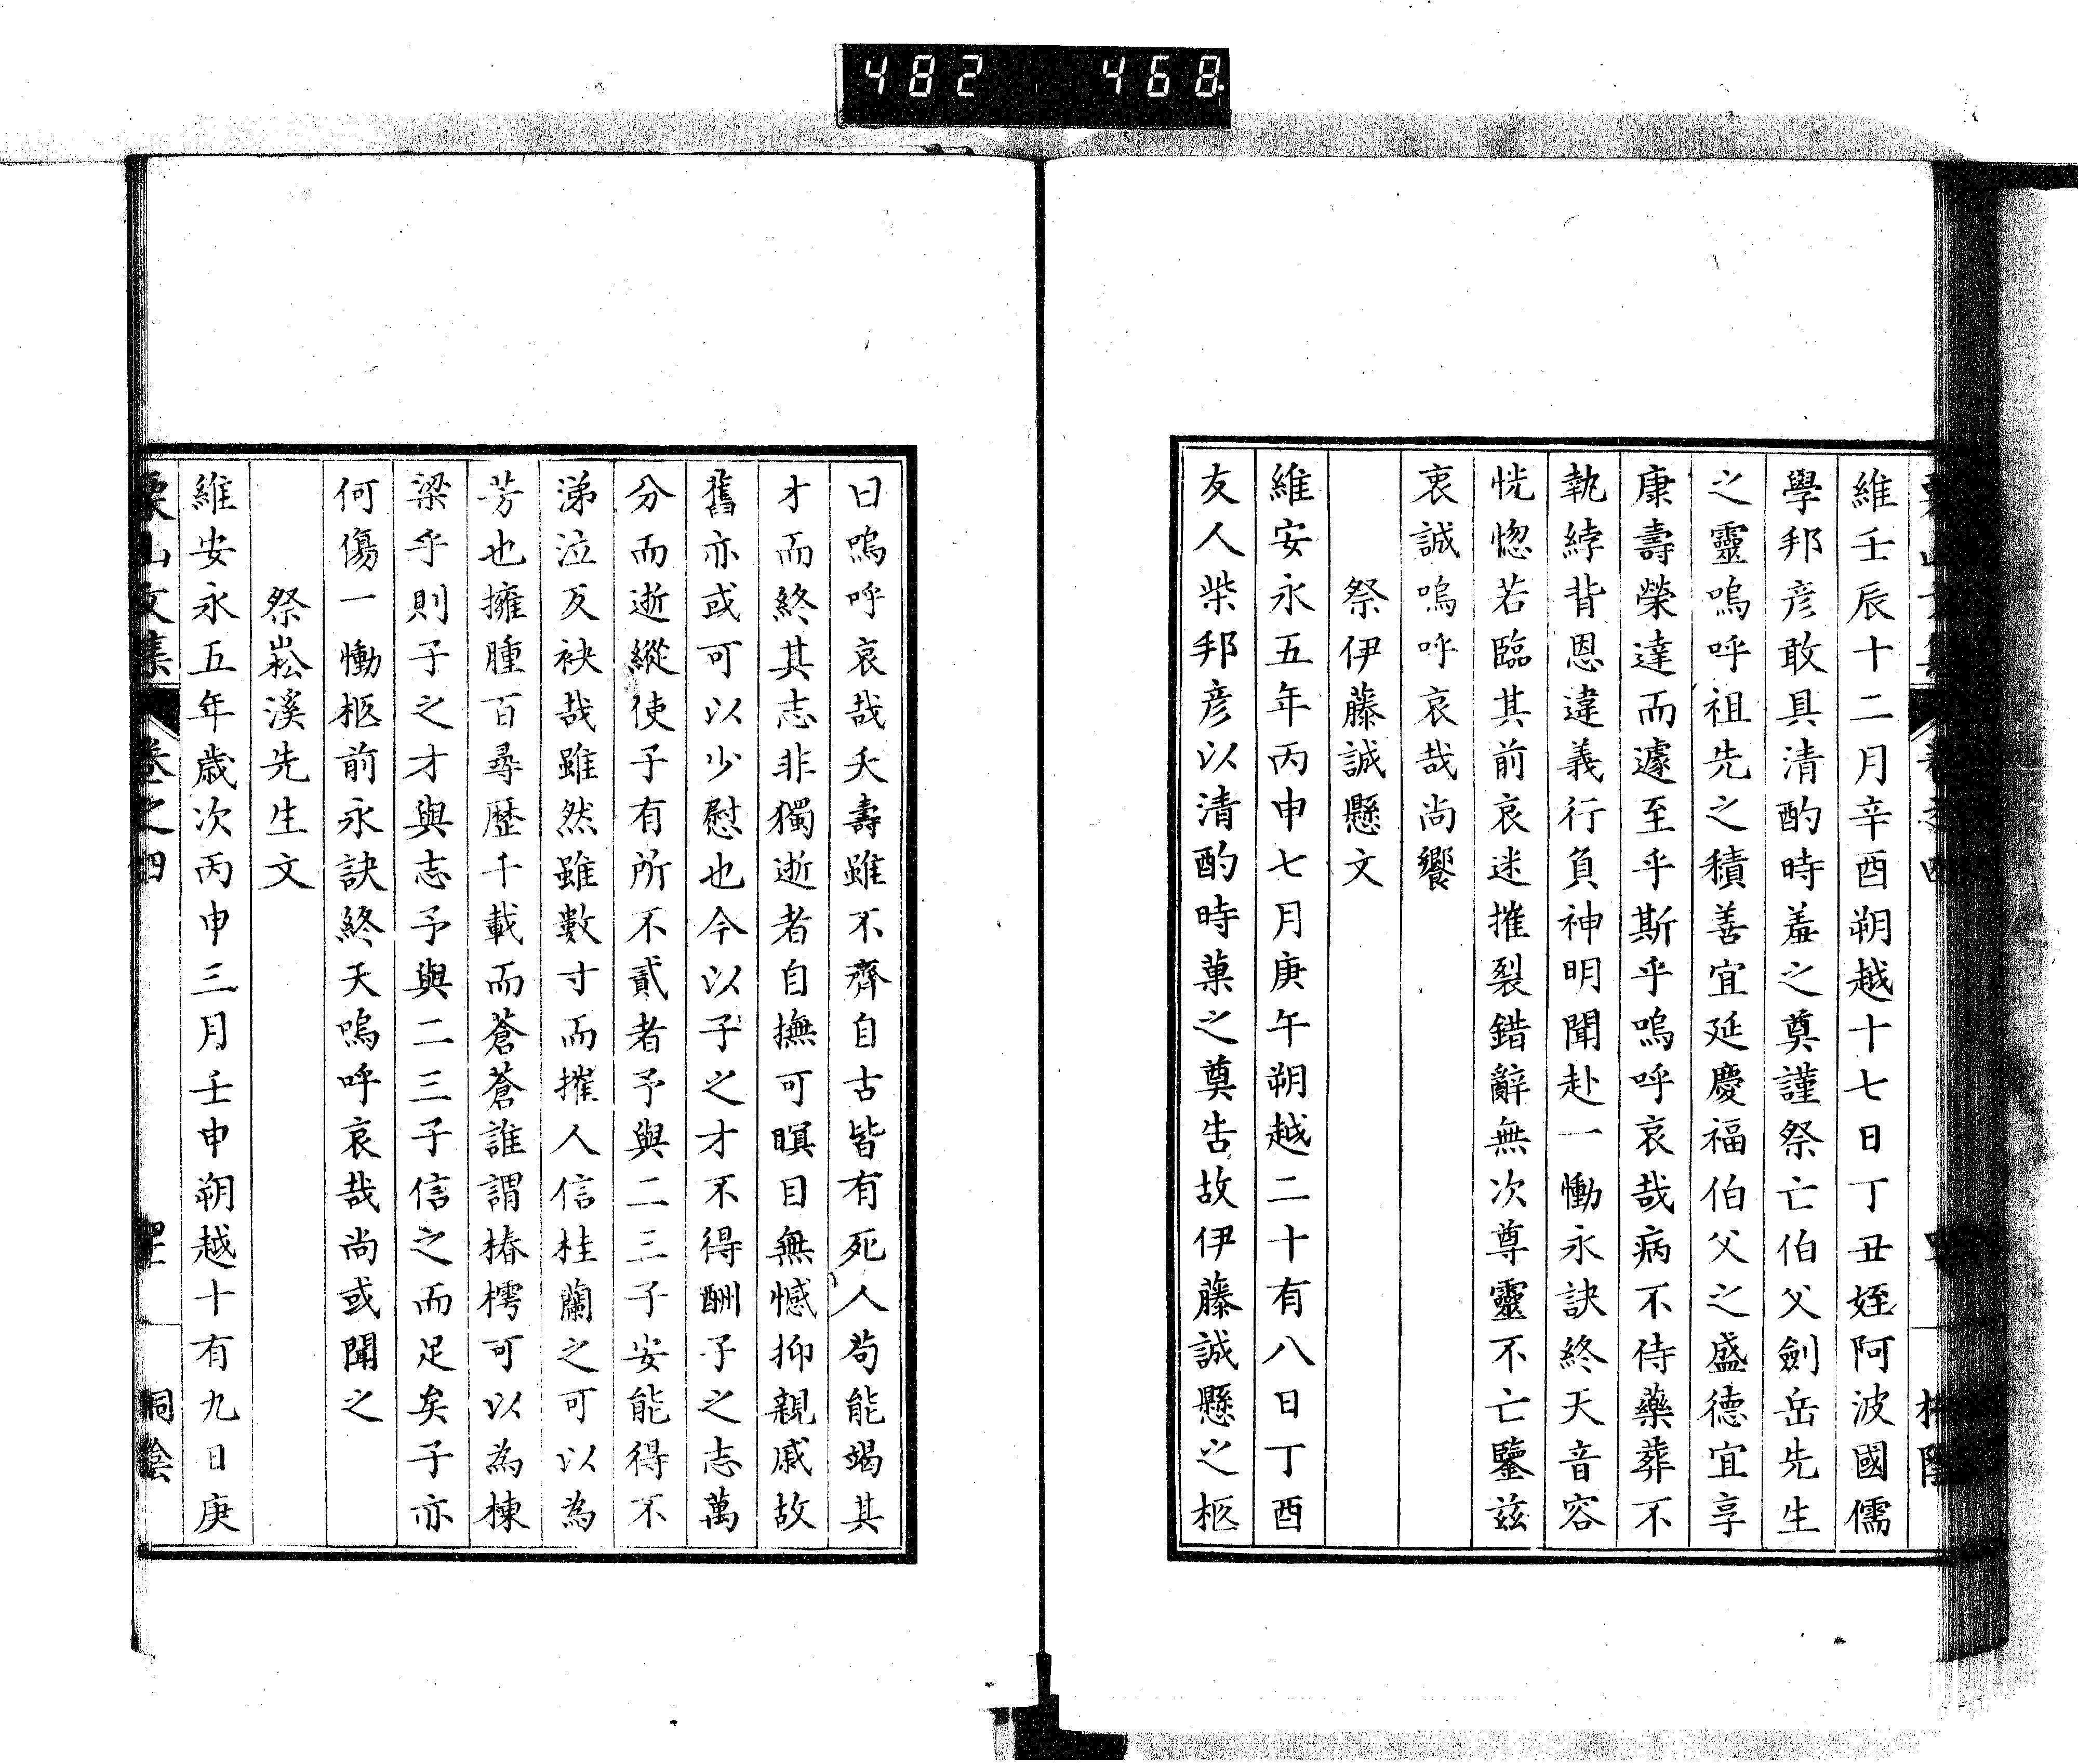 482 468
維壬辰十二月辛酉朔越十七日丁丑姪阿波國儒
學邦彦敢具清酌時羞之奠謹祭亡伯父劍岳先生
之靈嗚呼祖先之積善宜延慶福伯父之盛德宜享
康壽榮達而遽至乎斯乎嗚呼哀哉病不侍藥葬不
執綍背恩違義行負神明聞赴一慟永訣終天音容
恍惚若臨其前哀迷摧裂錯辭無次尊靈不亡鑒茲
衷誠嗚呼哀哉尚饗
祭伊藤誠懸文
維安永五年丙申七月庚午朔越二十有八日丁酉
友人柴邦彦以清酌時菓之奠告故伊藤誠懸之柩
曰嗚呼哀哉夭壽雖不齊自古皆有死人茍能竭其
才而終其志非獨逝者自撫可瞑目無憾抑親戚故
舊亦或可以少慰也今以子之才不得酬子之志萬
分而逝縱使子有所不貳者予與二三子安能得不
涕泣反袂哉雖然雖數寸而摧人信桂蘭之可以為
芳也擁腫百尋歷千載而蒼蒼誰謂椿樗可以為棟
梁乎則子之才與志予與二三子信之而足矣子亦
何傷一慟柩前永訣終天嗚呼哀哉尚或聞之
祭崧溪先生文
維安永五年歲次丙申三月壬申朔越十有九日庚
栗山文集 卷之四